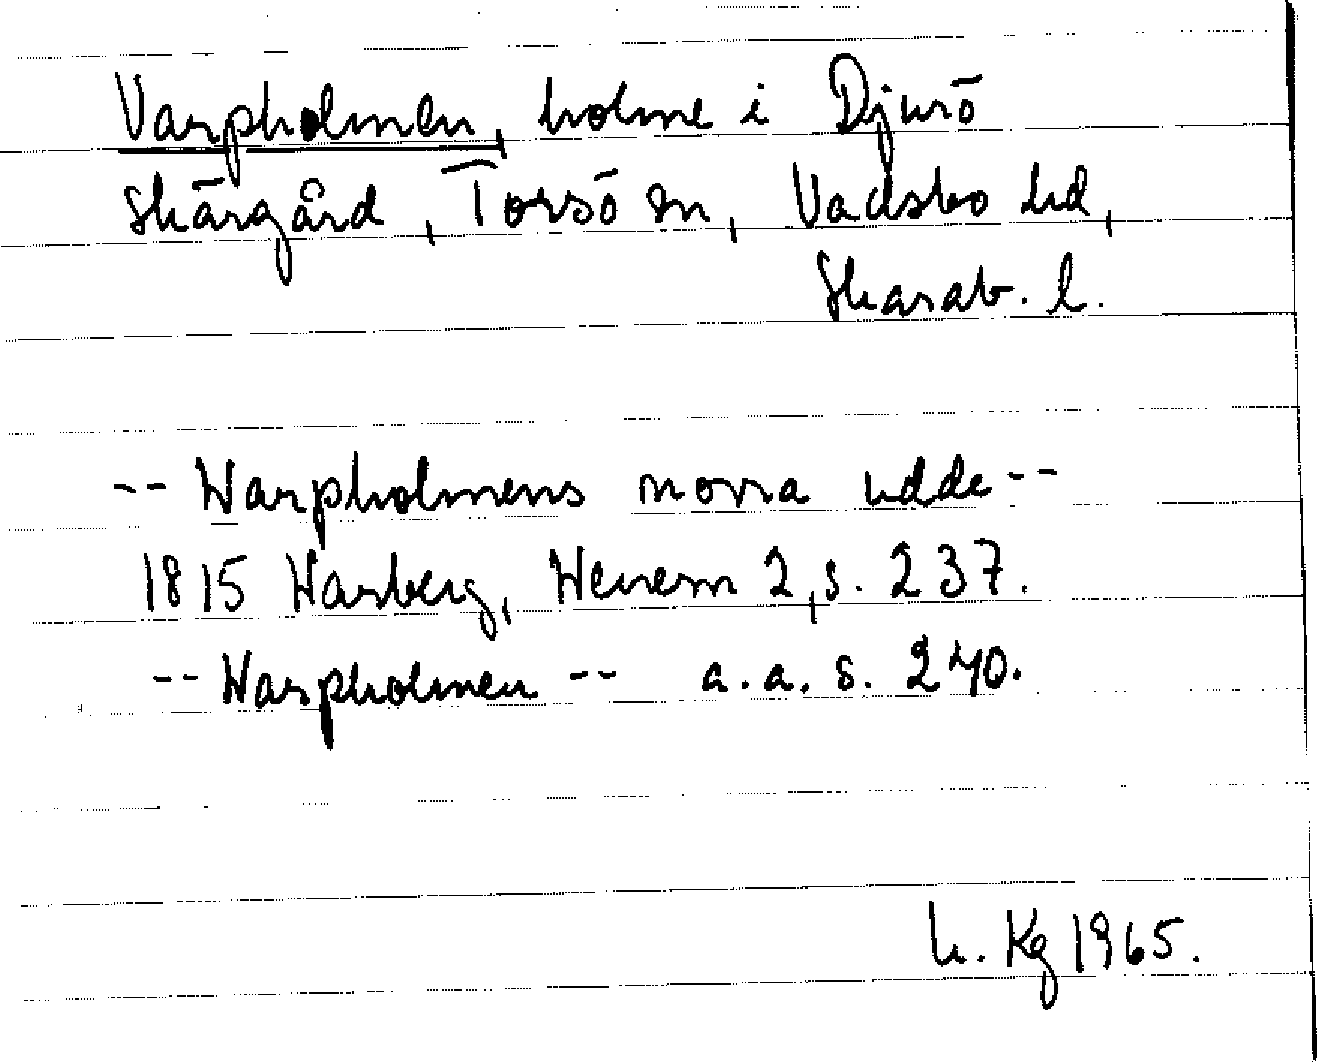 Varpholmen, holme i Djurö
skärgård, Torsö sn, Vadsbo hd,
Skarab. l.
-- Warpholmens norra udde --
1815 Warberg, Wenern 2, s. 237.
-- Warpholmen -- a.a. s. 240.
h. Kg 1965.